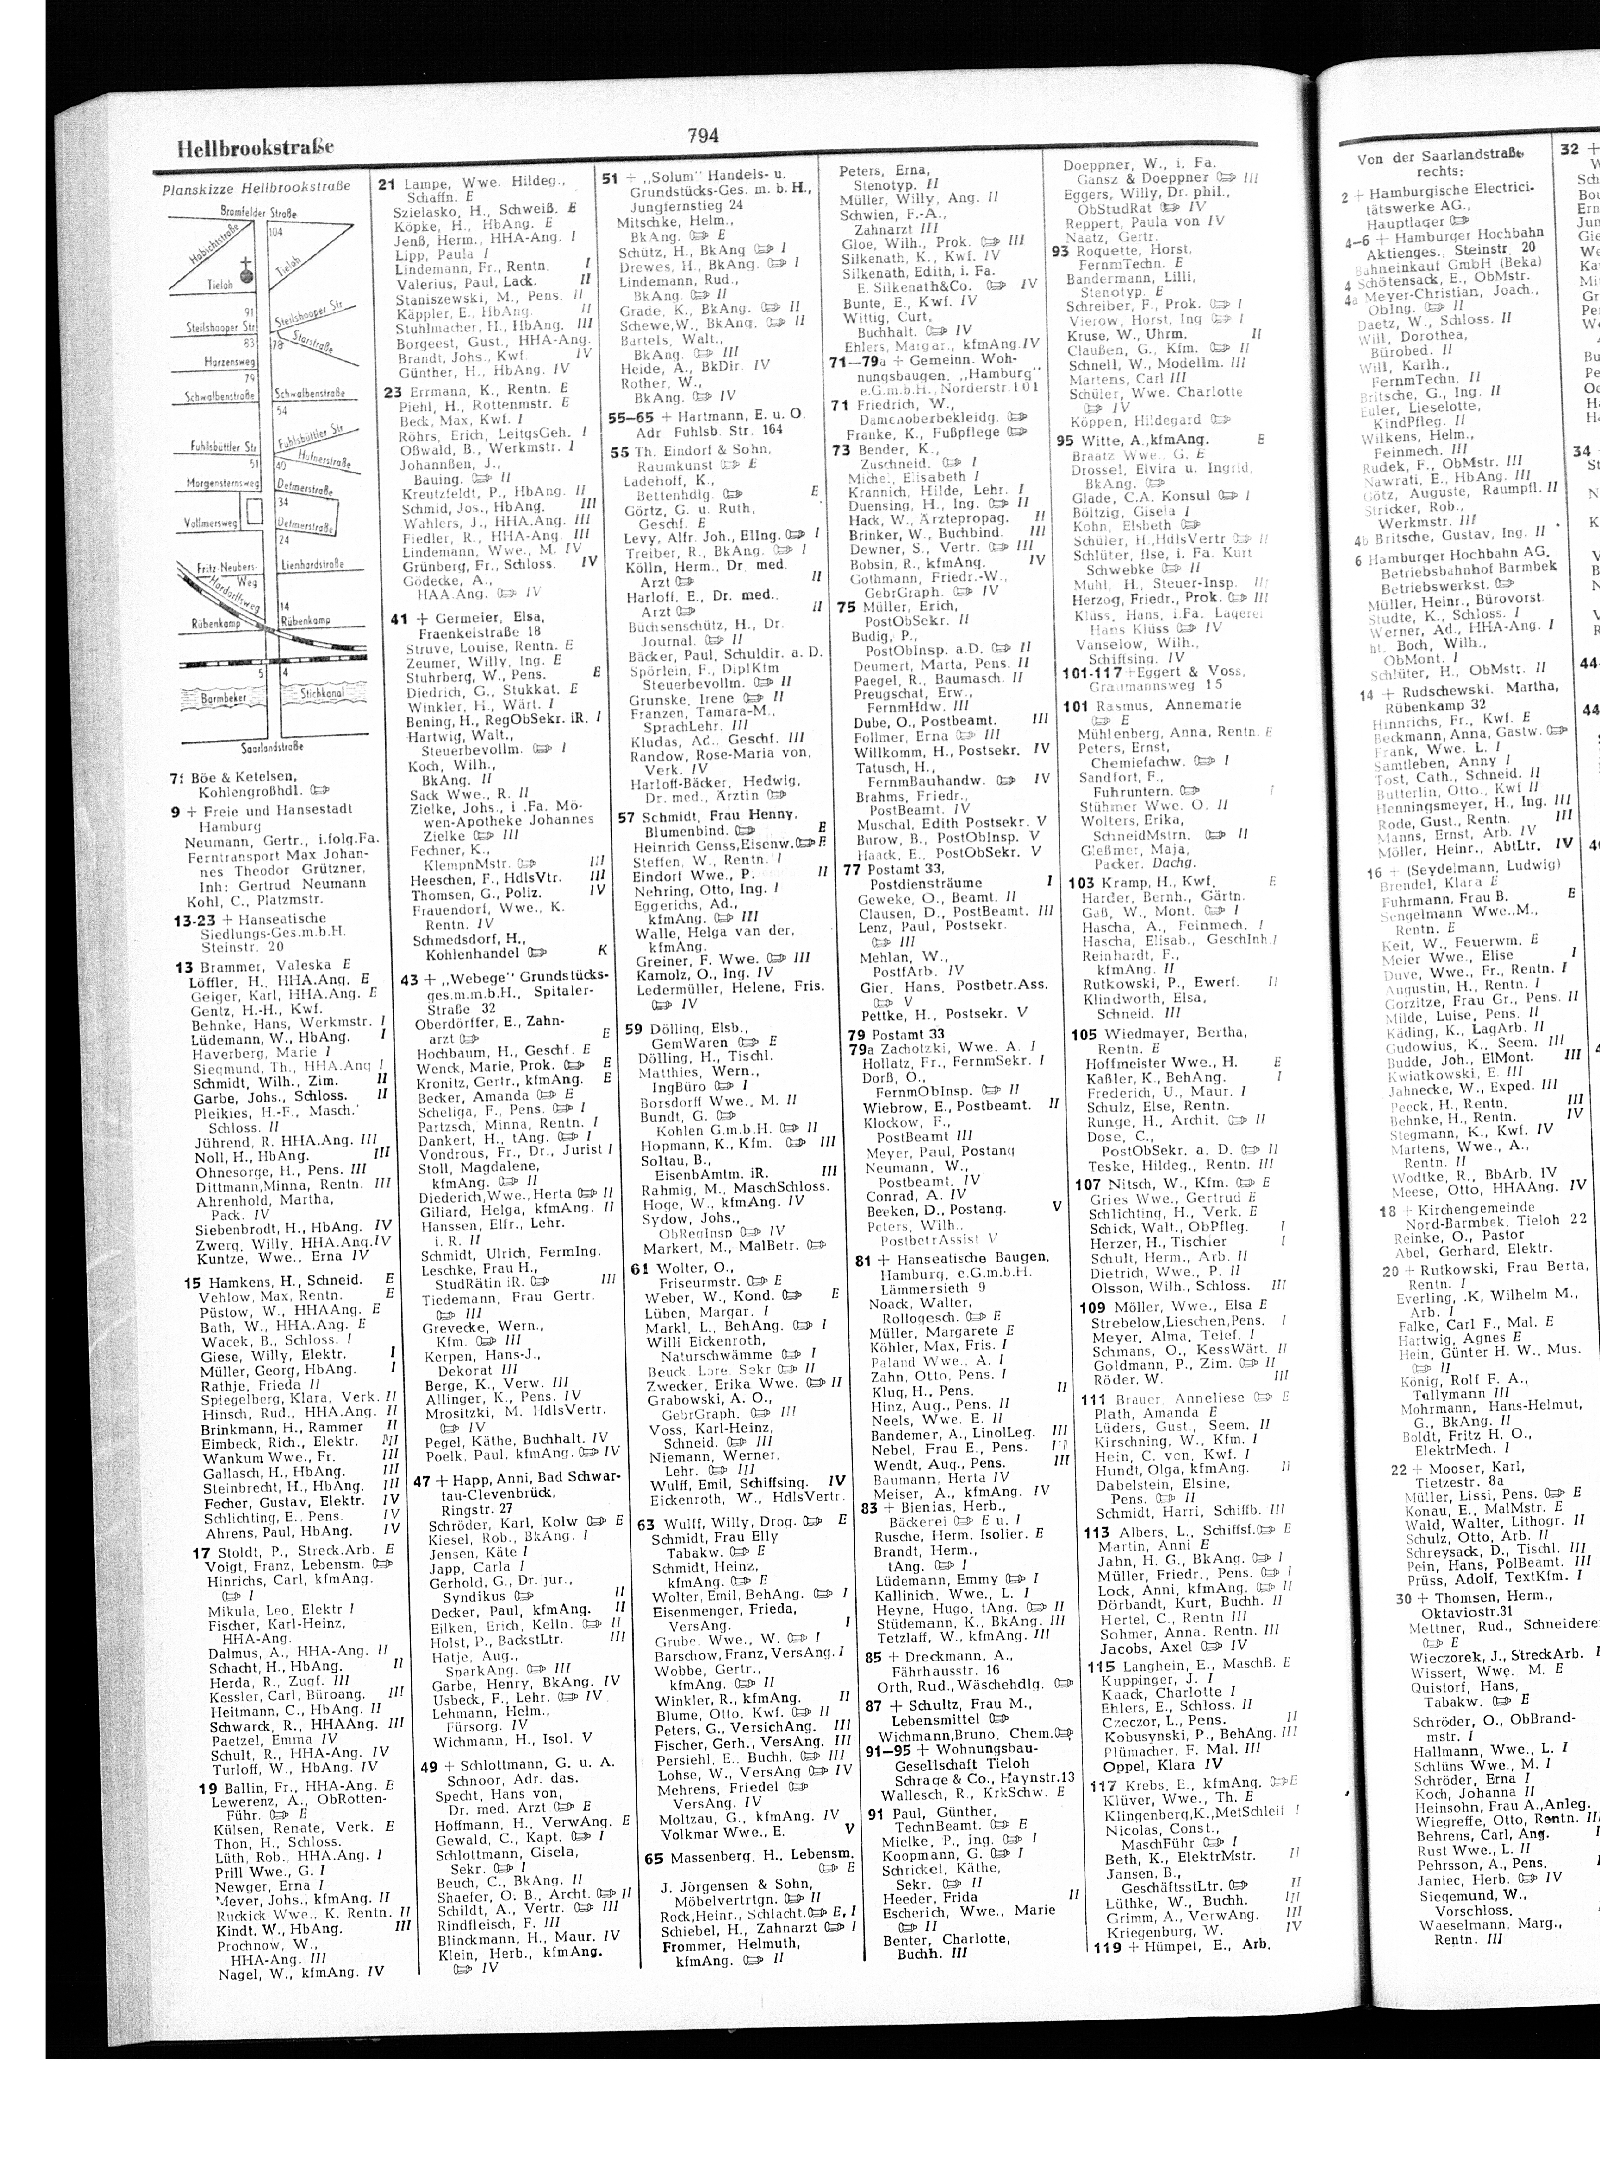 Hellbrookstraße
794
Planskizze Hellbrookstraße
Bramfelder Straße
Habichtstraße
104
Tieloh
Tieloh
91
Steilshooper Str
Steilshooper Str
83
78
Starstraße
Harzensweg
79
Schwalbenstraße
Schwalbenstraße
54
Fuhlsbüttler Str
Fuhlsbüttler Str
51
40
Hufnerstraße
Morgensternsweg
Detmerstraße
34
Vollmersweg
Detmerstraße
24
Fritz-Neubers-
Weg
Lienhardstraße
Hardorffsweg
14
Rübenkamp
Rübenkamp
5
4
Barmbeker
Stichkanal
Saarlandstraße
7f Böe & Ketelsen,
Kohlengroßhdl.
9 + Freie und Hansestadt
Hamburg
Neumann, Gertr., i.folg.Fa.
Ferntransport Max Johan-
nes Theodor Grützner,
Inh: Gertrud Neumann
Kohl, C., Platzmstr.
13-23 + Hanseatische
Siedlungs-Ges.m.b.H.
Steinstr. 20
13 Brammer, Valeska E
Löffler, H., HHA.Ang. E
Geiger, Karl, HHA.Ang. E
Gentz, H.-H., Kwf.
Behnke, Hans, Werkmstr. I
Lüdemann, W., HbAng. I
Haverberg, Marie I
Siegmund, Th., HHA.Ang I
Schmidt, Wilh., Zim. II
Garbe, Johs., Schloss. II
Pleikies, H.-F., Masch.
Schloss. II
Jührend, R. HHA.Ang. III
Noll, H., HbAng. III
Ohnesorge, H., Pens. III
Dittmann,Minna, Rentn. III
Ahrenhold, Martha,
Pack. IV
Siebenbrodt, H., HbAng. IV
Zwerg, Willy, HHA.Ang.IV
Kuntze, Wwe., Erna IV
15 Hamkens, H., Schneid. E
Vehlow, Max, Rentn. E
Püstow, W., HHAAng. E
Bath, W., HHA.Ang. E
Wacek, B., Schloss. I
Giese, Willy, Elektr. I
Müller, Georg, HbAng. I
Rathje, Frieda II
Spiegelberg, Klara, Verk. II
Hinsch, Rud., HHA.Ang. II
Brinkmann, H., Rammer II
Eimbeck, Rich., Elektr. III
Wankum Wwe., Fr. III
Gallasch, H., HbAng. III
Steinbrecht, H., HbAng. III
Fecher, Gustav, Elektr. IV
Schlichting, E., Pens. IV
Ahrens, Paul, HbAng. IV
17 Stoldt, P., Streck.Arb. E
Voigt, Franz, Lebensm.
Hinrichs, Carl, kfmAng.
I
Mikula, Leo, Elektr I
Fischer, Karl-Heinz,
HHA-Ang.
Dalmus, A., HHA-Ang. II
Schacht, H., HbAng. II
Herda, R., Zugf. III
Kessler, Carl, Büroang. III
Heitmann, C., HbAng. II
Schwarck, R., HHAAng. III
Paetzel, Emma IV
Schult, R., HHA-Ang. IV
Turloff, W., HbAng. IV
19 Ballin, Fr., HHA-Ang. E
Lewerenz, A., ObRotten-
Führ. E
Külsen, Renate, Verk. E
Thon, H., Schloss.
Lüth, Rob., HHA.Ang. I
Prill Wwe., G. I
Newger, Erna I
Meyer, Johs., kfmAng. II
Ruckick Wwe., K. Rentn. II
Kindt, W., HbAng. III
Prochnow, W.,
HHA-Ang. III
Nagel, W., kfmAng. IV
21 Lampe, Wwe. Hildeg.,
Schaffn. E
Szielasko, H., Schweiß. E
Köpke, H., HbAng. E
Jenß, Herm., HHA-Ang. I
Lipp, Paula I
Lindemann, Fr., Rentn. I
Valerius, Paul, Lack. II
Staniszewski, M., Pens. II
Käppler, E., HbAng. II
Stuhlmacher, H., HbAng. III
Borgeest, Gust., HHA-Ang.
Brandt, Johs., Kwf. IV
Günther, H., HbAng. IV
23 Errmann, K., Rentn. E
Piehl, H., Rottenmstr. E
Beck, Max, Kwf. I
Röhrs, Erich, LeitgsGeh. I
Oßwald, B., Werkmstr. I
Johannßen, J.,
Bauing. II
Kreutzfeldt, P., HbAng. II
Schmid, Jos., HbAng. III
Wahlers, J., HHA.Ang. III
Fiedler, R., HHA-Ang. III
Lindemann, Wwe., M. IV
Grünberg, Fr., Schloss. IV
Gödecke, A.,
HAA.Ang. IV
41 + Germeier, Elsa,
Fraenkelstraße 18
Struve, Louise, Rentn. E
Zeumer, Willy, Ing. E
Stuhrberg, W., Pens. E
Diedrich, G., Stukkat. E
Winkler, H., Wärt. I
Bening, H., RegObSekr. iR. I
Hartwig, Walt.,
Steuerbevollm. I
Koch, Wilh.,
BkAng. II
Sack Wwe., R. II
Zielke, Johs., i .Fa. Mö-
wen-Apotheke Johannes
Zielke III
Fechner, K.,
KlempnMstr. III
Heeschen, F., HdlsVtr. III
Thomsen, G., Poliz. IV
Frauendorf, Wwe., K.
Rentn. IV
Schmedsdorf, H.,
Kohlenhandel K
43 + „Webege" Grundstücks-
ges.m.m.b.H., Spitaler-
Straße 32
Oberdörffer, E., Zahn-
arzt E
Hochbaum, H., Geschf. E
Wenck, Marie, Prok. E
Kronitz, Gertr., kfmAng. E
Becker, Amanda E
Scheliga, F., Pens. I
Partzsch, Minna, Rentn. I
Dankert, H., tAng. I
Vondrous, Fr., Dr., Jurist I
Stoll, Magdalene,
kfmAng. II
Diederich,Wwe.,Herta II
Giliard, Helga, kfmAng. II
Hanssen, Elfr., Lehr.
i. R. II
Schmidt, Ulrich, FermIng.
Leschke, Frau H.,
StudRätin iR. III
Tiedemann, Frau Gertr.
III
Grevecke, Wern.,
Kfm. III
Kerpen, Hans-J.,
Dekorat III
Berge, K., Verw. III
Allinger, K., Pens. IV
Mrositzki, M. HdlsVertr.
IV
Pegel, Käthe, Buchhalt. IV
Poelk, Paul, kfmAng. IV
47 + Happ, Anni, Bad Schwar-
tau-Clevenbrück,
Ringstr. 27
Schröder, Karl, Kolw E
Kiesel, Rob., BkAng. I
Jensen, Käte I
Japp, Carla I
Gerhold, G., Dr. jur.,
Syndikus II
Decker, Paul, kfmAng. II
Eilken, Erich, Kelln. II
Holst, P., BackstLtr. III
Hatje, Aug.,
SparkAng. III
Garbe, Henry, BkAng. IV
Usbeck, F., Lehr. IV
Lehmann, Helm.,
Fürsorg. IV
Wichmann, H., Isol. V
49 + Schlottmann, G. u. A.
Schnoor, Adr. das.
Specht, Hans von,
Dr. med. Arzt E
Hoffmann, H., VerwAng. E
Gewald, C., Kapt. I
Schlottmann, Gisela,
Sekr. I
Beuch, C., BkAng. II
Shaefer, O. B., Archt. II
Schildt, A., Vertr. III
Rindfleisch, F. III
Blinckmann, H., Maur. IV
Klein, Herb., kfmAng.
IV
51 + „Solum" Handels- u.
Grundstücks-Ges. m. b. H.,
Jungfernstieg 24
Mitschke, Helm.,
BkAng. E
Schütz, H., BkAng I
Drewes, H., BkAng. I
Lindemann, Rud.,
BkAng. II
Grade, K., BkAng. II
Schewe,W., BkAng. II
Bartels, Walt.,
BkAng. III
Heide, A., BkDir. IV
Rother, W.,
BkAng. IV
55-65 + Hartmann, E. u. O.
Adr Fuhlsb. Str. 164
55 Th. Eindorf & Sohn,
Raumkunst E
Ladehoff, K.,
Bettenhdlg. E
Görtz, G. u. Ruth,
Geschf. E
Levy, Alfr. Joh., EIIng. I
Treiber, R., BkAng. I
Kölln, Herm., Dr. med.
Arzt II
Harloff, E., Dr. med.,
Arzt II
Büchsenschütz, H., Dr.
Journal. II
Bäcker, Paul, Schuldir. a. D.
Spörlein, F., DiplKfm
Steuerbevollm. II
Grunske, Irene II
Franzen, Tamara-M.,
SprachLehr. III
Kludas, Ad., Geschf. III
Randow, Rose-Maria von,
Verk. IV
Harloff-Bäcker, Hedwig,
Dr. med., Ärztin
57 Schmidt, Frau Henny,
Blumenbind. E
Heinrich Genss,Eisenw. E
Steffen, W., Rentn. I
Eindorf Wwe., P. II
Nehring, Otto, Ing. I
Eggerichs, Ad.,
kfmAng. III
Walle, Helga van der,
kfmAng.
Greiner, F. Wwe. III
Kamolz, O., Ing. IV
Ledermüller, Helene, Fris.
IV
59 Dölling, Elsb.,
GemWaren E
Dölling, H., Tischl.
Matthies, Wern.,
IngBüro I
Borsdorff Wwe., M. II
Bundt, G.
Kohlen G.m.b.H. II
Hopmann, K., Kfm. III
Soltau, B.,
EisenbAmtm. iR. III
Rahmig, M., MaschSchloss.
Hoge, W., kfmAng. IV
Sydow, Johs.,
ObRegInsp IV
Markert, M., MalBetr.
61 Wolter, O.,
Friseurmstr. E
Weber, W., Kond. E
Lüben, Margar. I
Markl, L., BehAng. I
Willi Eickenroth,
Naturschwämme I
Beuck, Lore, Sekr II
Zwecker, Erika Wwe. II
Grabowski, A. O.,
GebrGraph. III
Voss, Karl-Heinz,
Schneid. III
Niemann, Werner,
Lehr. III
Wulff, Emil, Schiffsing. IV
Eickenroth, W., HdlsVertr.
63 Wulff, Willy, Drog. E
Schmidt, Frau Elly
Tabakw. E
Schmidt, Heinz,
kfmAng. E
Wolter, Emil, BehAng. I
Eisenmenger, Frieda,
VersAng. I
Grube, Wwe., W. I
Barschow,Franz,VersAng.I
Wobbe, Gertr.,
kfmAng. II
Winkler, R., kfmAng. II
Blume, Otto, Kwf. II
Peters, G., VersichAng. III
Fischer, Gerh., VersAng. III
Persiehl, E., Buchh. III
Lohse, W., VersAng IV
Mehrens, Friedel
VersAng. IV
Moltzau, G., kfmAng. IV
Volkmar Wwe., E. V
65 Massenberg, H., Lebensm.
E
J. Jörgensen & Sohn,
Möbelvertrtgn. II
Rock,Heinr., Schlacht. E, I
Schiebel, H., Zahnarzt I
Frommer, Helmuth,
kfmAng. II
Peters, Erna,
Stenotyp. II
Müller, Willy, Ang. II
Schwien, F.-A.,
Zahnarzt III
Gloe, Wilh., Prok. III
Silkenath, K., Kwf. IV
Silkenath, Edith, i. Fa.
E. Silkenath&Co. IV
Bunte, E., Kwf. IV
Wittig, Curt,
Buchhalt. IV
Ehlers, Margar., kfmAng.IV
71—79a + Gemeinn. Woh-
nungsbaugen. „Hamburg"
e.G.m.b.H., Norderstr. 101
71 Friedrich, W.,
Damenoberbekleidg.
Franke, K., Fußpflege
73 Bender, K.,
Zuschneid. I
Michel, Elisabeth I
Krannich, Hilde, Lehr. I
Duensing, H., Ing. II
Hack, W., Ärztepropag. II
Brinker, W., Buchbind. III
Dewner, S., Vertr. III
Bobsin, R., kfmAng. IV
Gothmann, Friedr.-W.,
GebrGraph. IV
75 Müller, Erich,
PostObSekr. II
Budig, P.,
PostObInsp. a.D. II
Deumert, Marta, Pens. II
Paegel, R., Baumasch. II
Preugschat, Erw.,
FernmHdw. III
Dube, O., Postbeamt. III
Follmer, Erna III
Willkomm, H., Postsekr. IV
Tatusch, H.,
FernmBauhandw. IV
Brahms, Friedr.,
PostBeamt. IV
Muschal, Edith Postsekr. V
Burow, B., PostObInsp. V
Haack, E., PostObSekr. V
77 Postamt 33,
Postdiensträume I
Geweke, O., Beamt. II
Clausen, D., PostBeamt. III
Lenz, Paul, Postsekr.
III
Mehlan, W.,
PostfArb. IV
Gier, Hans, Postbetr.Ass.
V
Pettke, H., Postsekr. V
79 Postamt 33
79a Zachotzki, Wwe. A. I
Hollatz, Fr., FernmSekr. I
Dorß, O.,
FernmObInsp. II
Wiebrow, E., Postbeamt. II
Klockow, F.,
PostBeamt III
Meyer, Paul, Postang
Neumann, W.,
Postbeamt. IV
Conrad, A. IV
Beeken, D., Postang. V
Peters, Wilh.,
PostbetrAssist V
81 + Hanseatische Baugen.
Hamburg, e.G.m.b.H.
Lämmersieth 9
Noack, Walter,
Rollogesch. E
Müller, Margarete E
Köhler, Max, Fris. I
Paland Wwe., A. I
Zahn, Otto, Pens. I
Klug, H., Pens. II
Hinz, Aug., Pens. II
Neels, Wwe. E. II
Bandemer, A., LinolLeg. III
Nebel, Frau E., Pens. III
Wendt, Aug., Pens. III
Baumann, Herta IV
Meiser, A., kfmAng. IV
83 + Bienias, Herb.,
Bäckerei E u. I
Rusche, Herm. Isolier. E
Brandt, Herm.,
tAng. I
Lüdemann, Emmy I
Kallinich, Wwe., L. I
Heyne, Hugo, tAng. II
Stüdemann, K., BkAng. III
Tetzlaff, W., kfmAng. III
85 + Dreckmann, A.,
Fährhausstr. 16
Orth, Rud., Wäschehdlg.
87 + Schultz, Frau M.,
Lebensmittel
Wichmann,Bruno, Chem.
91—95 + Wohnungsbau-
Gesellschaft Tieloh
Schrage & Co., Haynstr.13
Wallesch, R., KrkSchw. E
91 Paul, Günther,
TechnBeamt. E
Mielke, P., ing. I
Koopmann, G. I
Schrickel, Käthe,
Sekr. II
Heeder, Frida II
Escherich, Wwe., Marie
II
Benter, Charlotte,
Buchh. III
Doeppner, W., i. Fa.
Gansz & Doeppner III
Eggers, Willy, Dr. phil.,
ObStudRat IV
Reppert, Paula von IV
Naatz, Gertr.
93 Roquette, Horst,
FernmTechn. E
Bandermann, Lilli,
Stenotyp. E
Schreiber, F., Prok. I
Vierow, Horst, Ing I
Kruse, W., Uhrm. II
Claußen, G., Kfm. II
Schnell, W., Modellm. III
Martens, Carl III
Schüler, Wwe. Charlotte
IV
Köppen, Hildegard
95 Witte, A.,kfmAng. E
Braatz Wwe., G. E
Drossel, Elvira u. Ingrid,
BkAng.
Glade, C.A. Konsul I
Böltzig, Gisela I
Kohn, Elsbeth
Schüler, H.,HdlsVertr II
Schlüter, Ilse, i. Fa. Kurt
Schwebke II
Muhl, H., Steuer-Insp. III
Herzog, Friedr., Prok. III
Klüss, Hans, i.Fa. Lagerei
Hans Klüss IV
Vanselow, Wilh.,
Schiffsing. IV
101-117 +Eggert & Voss,
Graumannsweg 15
101 Rasmus, Annemarie
E
Mühlenberg, Anna, Rentn. E
Peters, Ernst,
Chemiefachw. I
Sandfort, F.,
Fuhruntern. I
Stühmer Wwe. O. II
Wolters, Erika,
SchneidMstrn. II
Gleßmer, Maja,
Packer. Dachg.
103 Kramp, H., Kwf. E
Harder, Bernh., Gärtn.
Gaß, W., Mont. I
Hascha, A., Feinmech. I
Hascha, Elisab., GeschInh.I
Reinhardt, F.,
kfmAng. II
Rutkowski, P., Ewerf. II
Klindworth, Elsa,
Schneid. III
105 Wiedmayer, Bertha,
Rentn. E
Hoffmeister Wwe., H. E
Kaßler, K., BehAng. I
Frederich, U., Maur. I
Schulz, Else, Rentn.
Runge, H., Archit. II
Dose, C.,
PostObSekr. a. D. II
Teske, Hildeg., Rentn. III
107 Nitsch, W., Kfm. E
Gries Wwe., Gertrud E
Schlichting, H., Verk. E
Schick, Walt., ObPfleg. I
Herzer, H., Tischler I
Schult, Herm., Arb. II
Dietrich, Wwe., P. II
Olsson, Wilh., Schloss. III
109 Möller, Wwe., Elsa E
Strebelow,Lieschen,Pens. I
Meyer, Alma, Telef. I
Schmans, O., KessWärt. II
Goldmann, P., Zim. II
Röder, W. III
111 Brauer, Anneliese E
Plath, Amanda E
Lüders, Gust., Seem. II
Kirschning, W., Kfm. I
Hein, C. von, Kwf. I
Hundt, Olga, kfmAng. II
Dabelstein, Elsine,
Pens. II
Schmidt, Harri, Schiffb. III
113 Albers, L., Schiffsf. E
Martin, Anni E
Jahn, H. G., BkAng. I
Müller, Friedr., Pens. I
Lock, Anni, kfmAng. II
Dörbandt, Kurt, Buchh. II
Hertel, C., Rentn III
Sohmer, Anna, Rentn. III
Jacobs, Axel IV
115 Langhein, E., MaschB. E
Kuppinger, J. I
Kaack, Charlotte I
Ehlers, E., Schloss. II
Czeczor, L., Pens. II
Kobusynski, P., BehAng. III
Plümacher, F. Mal. III
Oppel, Klara IV
117 Krebs, E., kfmAng. E
Klüver, Wwe., Th. E
Klingenberg,K.,MetSchleif I
Nicolas, Const.,
MaschFühr I
Beth, K., ElektrMstr. II
Jansen, B.,
GeschäftsstLtr. II
Lüthke, W., Buchh. III
Grimm, A., VerwAng. III
Kriegenburg, W. IV
119 + Hümpel, E., Arb.
Von der Saarlandstraße
rechts:
2 + Hamburgische Electrici-
tätswerke AG.,
Hauptlager
4—6 + Hamburger Hochbahn
Aktienges., Steinstr. 20
Bahneinkauf GmbH (Beka)
4 Schötensack, E., ObMstr.
4a Meyer-Christian, Joach.,
ObIng. II
Daetz, W., Schloss. II
Will, Dorothea,
Bürobed. II
Will, Karlh.,
FernmTechn. II
Britsche, G., Ing. II
Euler, Lieselotte,
KindPfleg. II
Wilkens, Helm.,
Feinmech. III
Rudek, F., ObMstr. III
Nawrati, E., HbAng. III
Götz, Auguste, Raumpfl. II
Stricker, Rob.,
Werkmstr. III
4b Britsche, Gustav, Ing. II
6 Hamburger Hochbahn AG.
Betriebsbahnhof Barmbek
Betriebswerkst.
Müller, Heinr., Bürovorst.
Studte, K., Schloss. I
Werner, Ad., HHA-Ang. I
ht. Boch, Wilh.,
ObMont. I
Schlüter, H., ObMstr. II
14 + Rudschewski, Martha,
Rübenkamp 32
Hinrichs, Fr., Kwf. E
Beckmann, Anna, Gastw.
Frank, Wwe. L. I
Samtleben, Anny I
Tost, Cath., Schneid. II
Butterlin, Otto., Kwf II
Henningsmeyer, H., Ing. III
Rode, Gust., Rentn. III
Manns, Ernst, Arb. IV
Möller, Heinr., AbtLtr. IV
16 + (Seydelmann, Ludwig)
Brendel, Klara E
Fuhrmann, Frau B. E
Sengelmann Wwe.,M.,
Rentn. E
Keit, W., Feuerwm. E
Meier Wwe., Elise I
Duve, Wwe., Fr., Rentn. I
Augustin, H., Rentn. I
Gorzitze, Frau Gr., Pens. II
Milde, Luise, Pens. II
Käding, K., LagArb. II
Gudowius, K., Seem. III
Budde, Joh., ElMont. III
Kwiatkowski, E. III
Jahnecke, W., Exped. III
Peeck, H., Rentn. III
Behnke, H., Rentn. IV
Stegmann, K., Kwf. IV
Martens, Wwe., A.,
Rentn. II
Wodtke, R., BbArb. IV
Meese, Otto, HHAAng. IV
18 + Kirchengemeinde
Nord-Barmbek, Tieloh 22
Reinke, O., Pastor
Abel, Gerhard, Elektr.
20 + Rutkowski, Frau Berta,
Rentn. I
Everling, .K, Wilhelm M.,
Arb. I
Falke, Carl F., Mal. E
Hartwig, Agnes E
Hein, Günter H. W., Mus.
II
König, Rolf F. A.,
Tallymann III
Mohrmann, Hans-Helmut,
G., BkAng. II
Boldt, Fritz H. O.,
ElektrMech. I
22 + Mooser, Karl,
Tietzestr. 8a
Müller, Lissi, Pens. E
Konau, E., MalMstr. E
Wald, Walter, Lithogr. II
Schulz, Otto, Arb. II
Schreysack, D., Tischl. III
Pein, Hans, PolBeamt. III
Prüss, Adolf, TextKfm. I
30 + Thomsen, Herm.,
Oktaviostr.31
Mettner, Rud., Schneidere
E
Wieczorek, J., StreckArb. E
Wissert, Wwe. M. E
Quistorf, Hans,
Tabakw. E
Schröder, O., ObBrand-
mstr. I
Hallmann, Wwe., L. I
Schlüns Wwe., M. I
Schröder, Erna I
Koch, Johanna II
Heinsohn, Frau A.,Anleg.
Wiegreffe, Otto, Rentn. III
Behrens, Carl, Ang.
Rust Wwe., L. II
Pehrsson, A., Pens.
Janiec, Herb. IV
Siegemund, W.,
Vorschloss.
Waeselmann, Marg.,
Rentn. III
32 +
34
44-
44